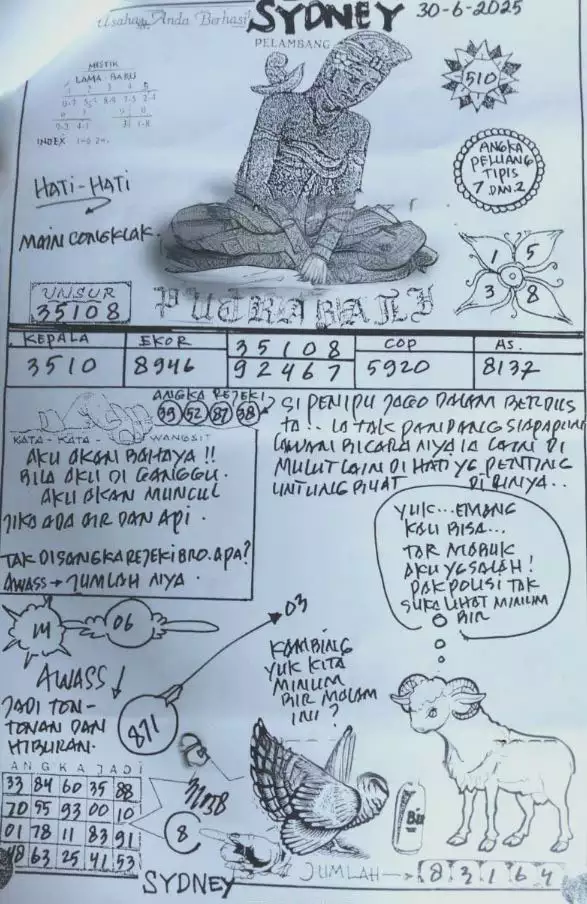 Usaha Anda Berhasil
SYDNEY
30-6-2025
PELAMBANG
MISTIK
LAMA - BARU
INDEX
510
HATI-HATI
MAIN CONGKLAK.
ANGKA
PELUANG
TIPIS
7 DAN 2
1 5
3 8
UNSUR
35108
PUTRA RAJI
KEPALA EKOR 35108 COP AS.
3510 8946 92467 5920 8137
ANGKA REJEKI
39 52 87 38
KATA - KATA - WANGSIT
AKU AKAN BAHAYA !!
BILA AKU DI GANGGU.
AKU AKAN MUNCUL
JIKA ADA AIR DAN API.
TAK DISANGKA REJEKI BRO. APA?
AWASS → JUMLAH NYA.
SI PENIPU JAGO DALAM BERDUS
TA.. IA TAK PANDANG SIAPAPUN
LAWAN BICARA NYA IA LAIN DI
MULUT LAIN DI HATI YG PENTING
UNTUNG BUAT DIRINYA..
YUK...EMANG
KAU BISA...
TAR MABUK
AKU YG SALAH!
PAK POLISI TAK
SUKA LIHAT MINUM
BIR
06
03
AWASS!
JADI TON-
TONAN DAN
HIBURAN.
871
KAMBING
YUK KITA
MINUM
BIR MALAM
INI?
ANGKA JADI
33 84 60 35 88
70 55 93 00 10
01 78 11 83 91
48 63 25 41 53
8
Bir
JUMLAH → 8 3 1 6 4
SYDNEY